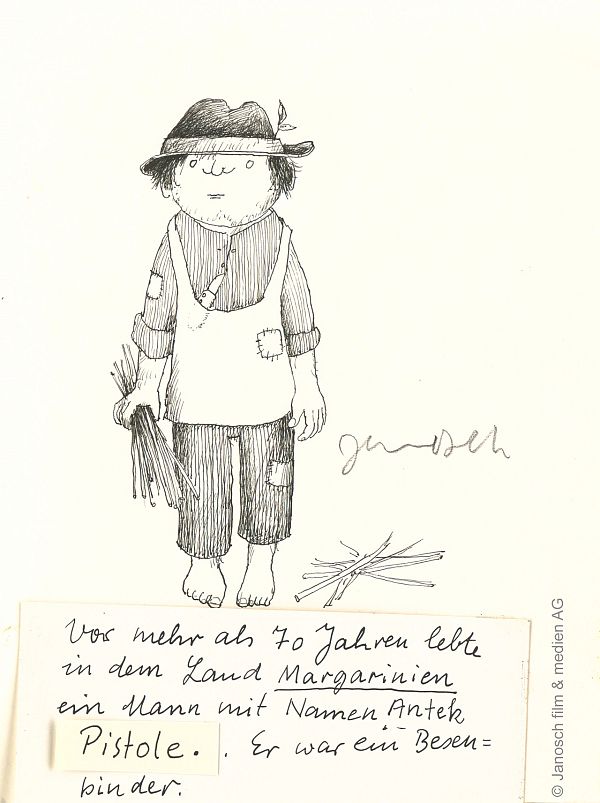 Janosch
Vor mehr als 70 Jahren lebte
in dem Land Margarinien
ein Mann mit Namen Antek
Pistole. . Er war ein Besen=
binder.
© Janosch film & medien AG